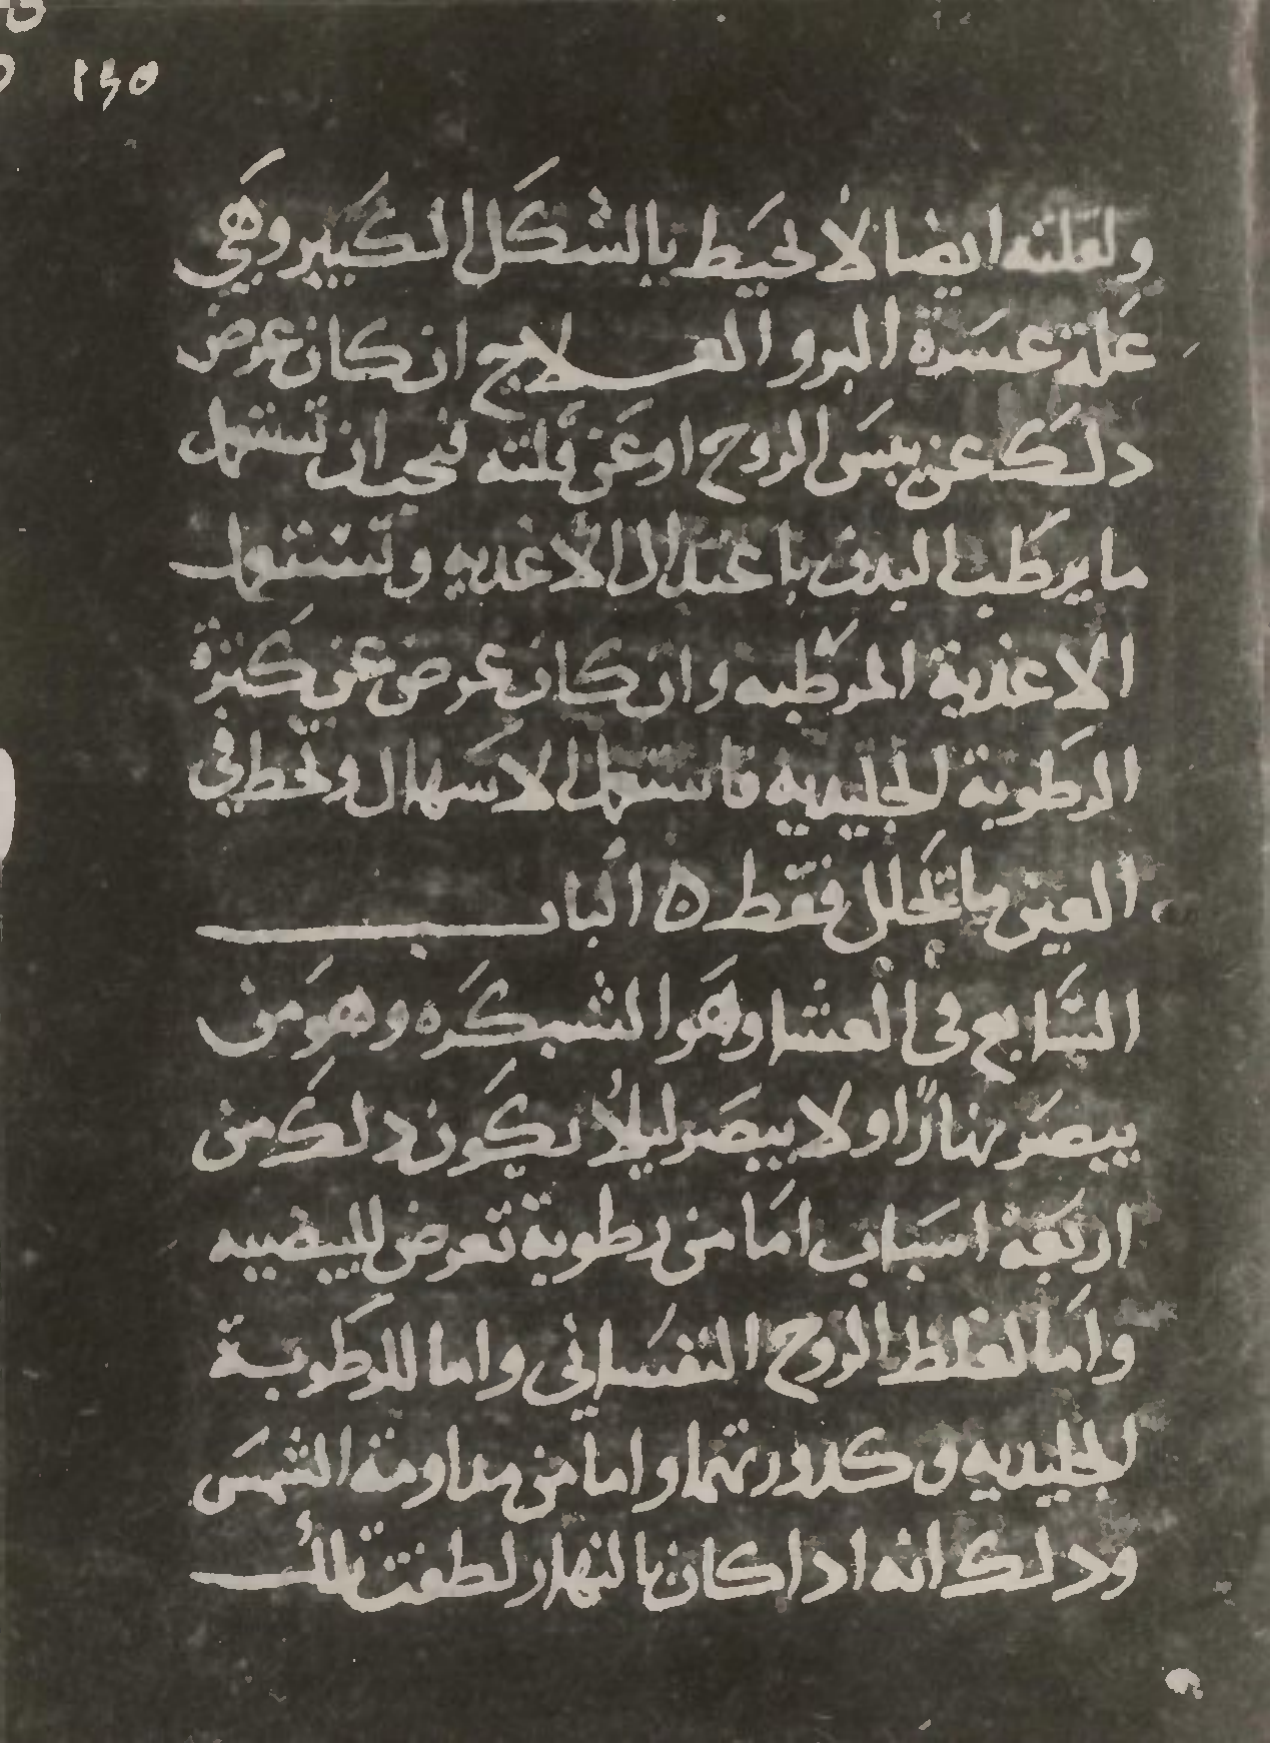 ١٤٥
ولعلته ايضا لا تحيط بالشكل الكبير وهي
علة عسرة البرو العلاج ان كان عرض
دلك عن يبس الروح او عن قلته فيجب ان تستعمل
ما يرطب البدن باعتدال الاغديه وتستعمل
الاغذية المرطبه وان كان عرض عن كثرة
الرطوبة الجليديه فاستعمل الاسهال وتحط في
العين ما تحلل فقط ه الباب
السابع في العشا وهو الشبكره وهو من
يبصر نهارًا ولا يبصر ليلًا يكون دلك من
اربعة اسباب اما من رطوبة تعرض للبيضيه
واما لغلظ الروح النفساني واما للرطوبة
الجليديه وكدورتها واما من مداومة الشمس
ودلك انه ادا كان بالنهار لطفت تلك